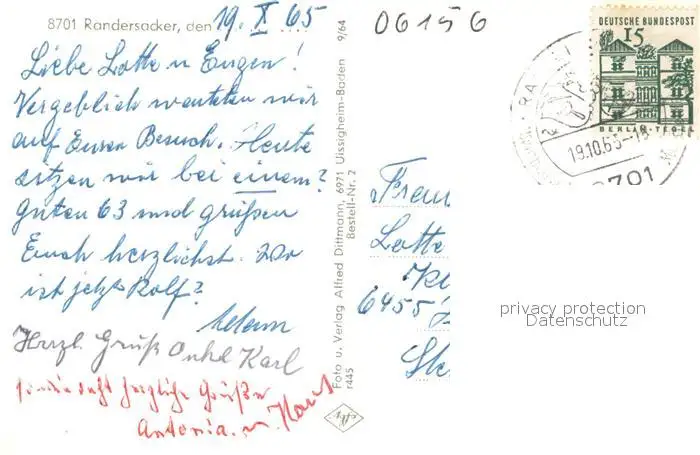 8701 Randersacker, den 19. X 65
06156
DEUTSCHE BUNDESPOST
15
BERLIN-TEGEL
19.10.65-18
8701
Liebe Lotte u Eugen!
Vergeblich warteten wir
auf Euren Besuch. Heute
sitzen wir bei einem?
guten 63 und grüßen
Euch herzlichst. Wo
ist jetzt Rolf?
Herzl. Gruß Onkel Karl
herzliche Grüße
Antonia. u. Karl
Foto u. Verlag Alfred Dittmann, 6971 Uissigheim-Baden 9/64
r445 Bestell-Nr. 2
Frau
Lotte
Kl
6455
privacy protection
Datenschutz